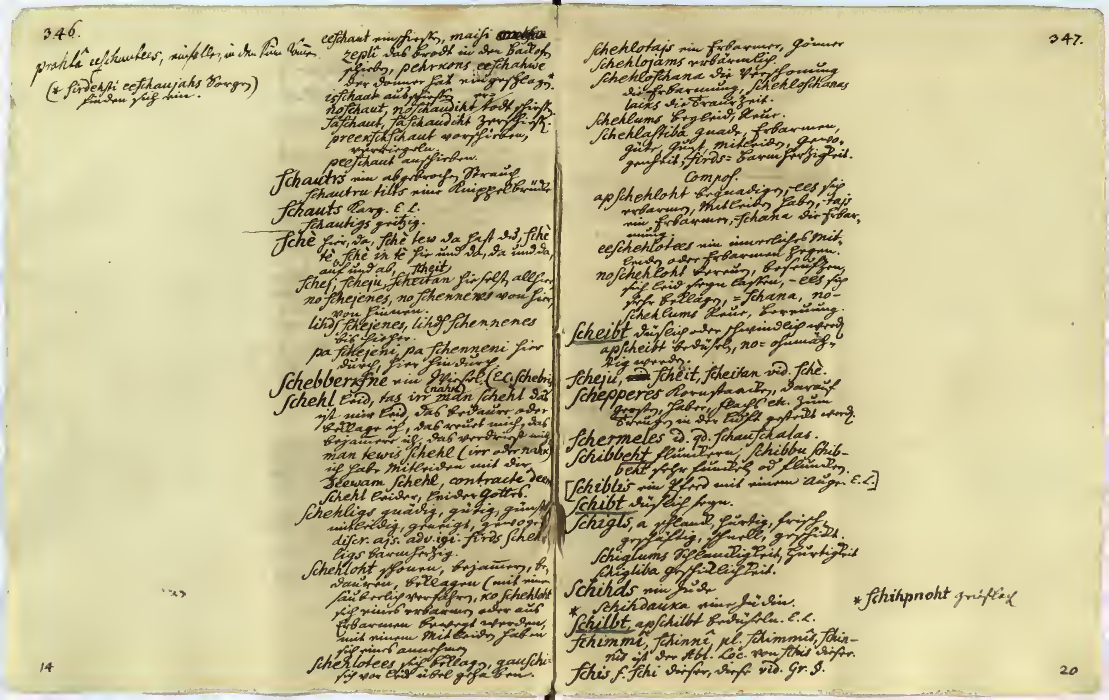 346.
prahtâ eeschautees, einfallen, in den Sinn
(* sirdehsti eeschaujahs Sorgen)
finden sich ein.
eeschaut einschießen, maisi
zepli das Brodt in den Backofen
schieben, pehrkons eeschahwe
der Donner hat eingeschlagen
isschaut ausschießen
noschaut, noschaudiht todt schießen
saschaut, saschaudiht zerschießen
preekschschaut vorschieben,
verriegeln.
peeschaut anschieben.
Schautrs ein abgebrochen Strauch
schautru tilts eine Knüppelbrücke
Schauts karg. E. L.
schautigs geitzig.
Schê hier, da, schê tew da hast du, schê
tê, schê in tê hie und da, da und da,
auf und ab, scheit
schej, scheju, scheitan hieselbst, allhier
no schejenes, no schennenes von hier,
von hinnen.
lihds schejenes, lihds schennenes
bis hieher.
pa schejeni, pa schenneni hier
durch, hier hindurch.
Schebberksne ein Wiesel (E.L. schebris
Schehl Leid, tas irr man schehl das
(nahk)
ist mir leid, das bedaure oder
beklage ich, das reuet mich, das
bejammere ich, das verdrießt mich
man tewis schehl (irr oder nahk)
ich habe Mitleiden mit dir
Deewam schehl, contracte deem
schehl leider, leider Gottes.
schehligs gnädig, gütig, günstig
mitleidig, geneigt, gewogen
discr. ais. adv. igi sirds schehligs
ligs barmherzig.
schehloht schonen, bejammern, be-
dauren, beklagen (mit einem
säuberlich verfahren, ko schehloht
sich eines erbarmen oder aus
Erbarmen bewegt werden,
mit einem Mitleiden haben
sich eines annehmen
schehlotees sich beklagen, gauschi
sich vor Leid übel gehaben.
14
347.
schehlotajs ein Erbarmer, Gönner
schehlojams erbärmlich
schehloschana die Verschonung
die Erbarmung, schehloschanas
laiks die Traurzeit.
schehlums Leid, Reue.
schehlastiba Gnade, Erbarmen,
Güte, Gunst, Mitleiden, Gewo-
genheit, sirds= Barmherzigkeit.
Compos.
apschehloht begnadigen, -ees sich
erbarmen, Mitleiden haben, -tajs
ein Erbarmer, -schana die Erbar-
mung.
eeschehlotees ein innerliches Mit-
leiden oder Erbarmen hegen.
noschehloht bereuen, beseufzen,
sich leid seyn lassen, -ees sich
sehr beklagen, =schana, no-
schehlums Reue, Bereuung.
Scheibt düslich oder schwindlich werden
apscheibt bedüseln, no= ohnmäch-
tig werden.
Scheju, scheit, scheitan vid. schê.
Schepperes Kornstaaken, darauf
Gersten, Haber, Flachs etc. zum
in der Luft gesteckt werden.
Schermeles id. qd. schauschalas.
Schibbeht flimmern, schibbu schib-
beht sehr funkeln od flimmern.
[Schiblis ein Pferd mit einem Auge. E.L.]
Schibt düslich seyn.
Schigls, a schlank, hurtig, frisch,
geschäftig, schnell, geschickt.
schiglums Schleunigkeit, Hurtigkeit
schigliba Geschicklichkeit.
Schihds ein Jude
* schihdauka eine Jüdin.
* schihpnoht
Schilbt, apschilbt bedüseln. E. L.
Schimmî, schinnî, pl. schimmis, schin-
nis ist der Abl. Loc. von schis dieser.
Schis f. schi dieser, diese vid. Gr. §.
20